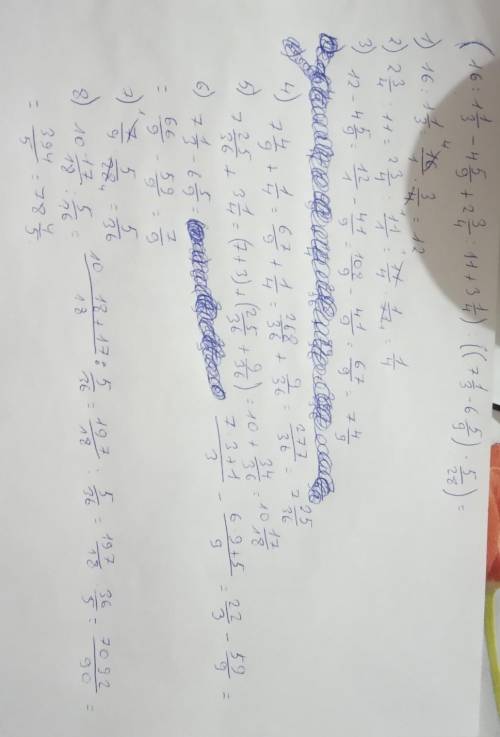 (16 : 1 1/3 - 4 5/9 + 2 3/4 : 11 + 3 1/4) : ((7 1/3 - 6 5/9) · 5/28) =
1) 16 : 1 1/3 = 16/1 · 3/4 = 12
2) 2 3/4 : 11 = 2 3/4 : 11/1 = 11/4 · 1/11 = 1/4
3) 12 - 4 5/9 = 12/1 - 41/9 = 108/9 - 41/9 = 67/9 = 7 4/9
4) 7 4/9 + 1/4 = 67/9 + 1/4 = 268/36 + 9/36 = 277/36 = 7 25/36
5) 7 25/36 + 3 1/4 = (7 + 3) + (25/36 + 9/36) = 10 + 34/36 = 10 17/18
6) 7 1/3 - 6 5/9 = 7·3+1/3 - 6·9+5/9 = 22/3 - 59/9 =
= 66/9 - 59/9 = 7/9
7) 7/9 · 5/28 = 5/36
8) 10 17/18 : 5/36 = 10·18+17/18 : 5/36 = 197/18 : 5/36 = 197/18 · 36/5 = 7092/90 =
= 394/5 = 78 4/5